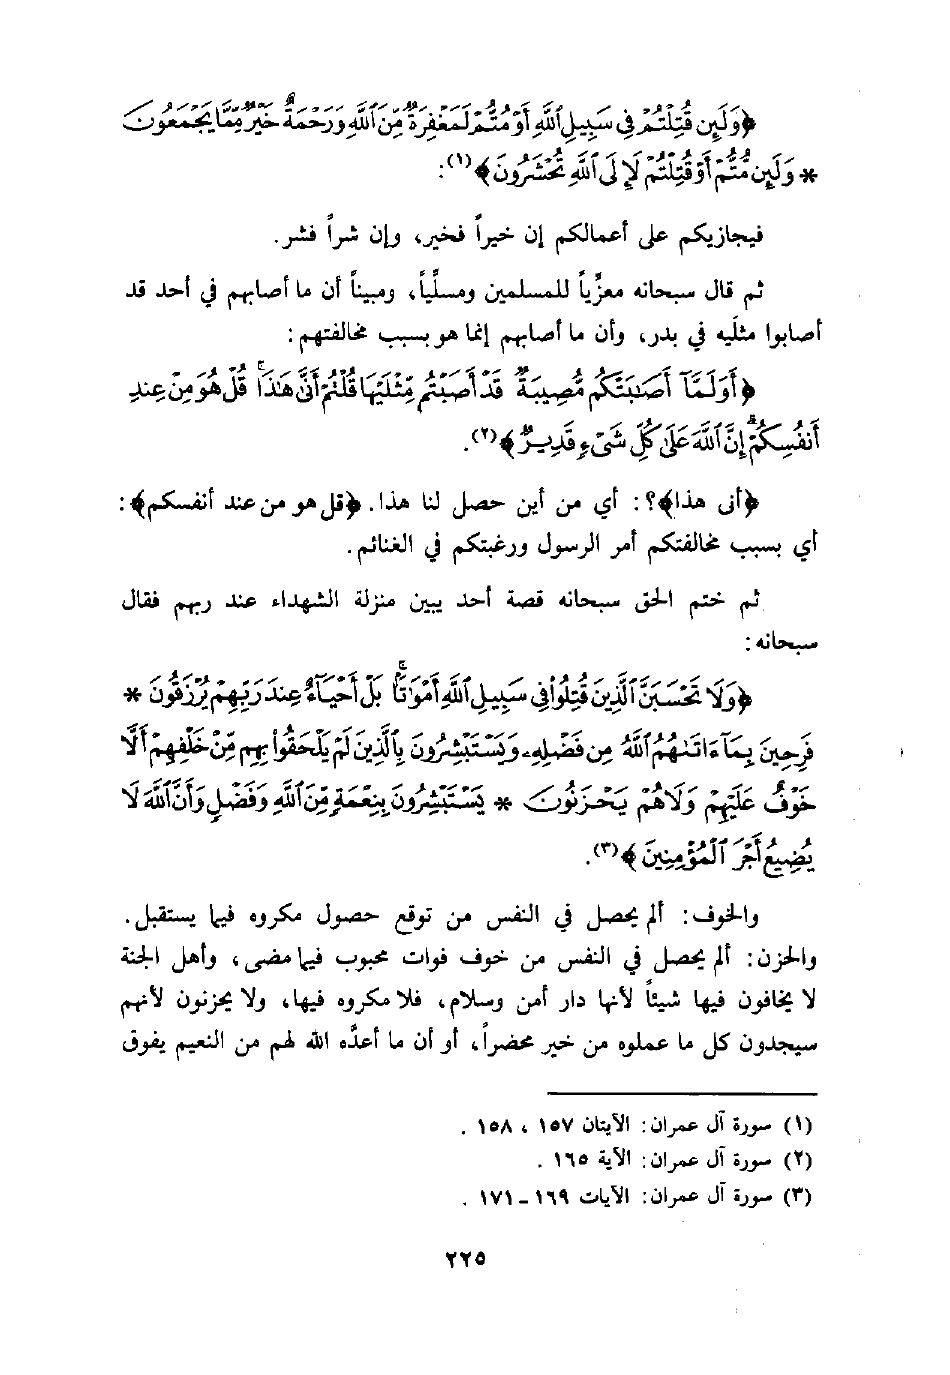 ﴿وَلَئِن قُتِلْتُمْ فِى سَبِيلِ ٱللَّهِ أَوْ مُتُّمْ لَمَغْفِرَةٌ مِّنَ ٱللَّهِ وَرَحْمَةٌ خَيْرٌ مِّمَّا يَجْمَعُونَ
* وَلَئِن مُّتُّمْ أَوْ قُتِلْتُمْ لَإِلَى ٱللَّهِ تُحْشَرُونَ﴾(١):
فيجازيكم على أعمالكم إن خيراً فخير، وإن شراً فشر.
ثم قال سبحانه معزِّياً للمسلمين ومسلِّياً، ومبيناً أن ما أصابهم في أحد قد
أصابوا مثلَيه في بدر، وأن ما أصابهم إنما هو بسبب مخالفتهم:
﴿أَوَلَمَّآ أَصَٰبَتْكُم مُّصِيبَةٌ قَدْ أَصَبْتُم مِّثْلَيْهَا قُلْتُمْ أَنَّىٰ هَٰذَا ۖ قُلْ هُوَ مِنْ عِندِ
أَنفُسِكُمْ ۗ إِنَّ ٱللَّهَ عَلَىٰ كُلِّ شَىْءٍ قَدِيرٌ﴾(٢).
﴿أنى هذا﴾؟: أي من أين حصل لنا هذا. ﴿قل هو من عند أنفسكم﴾:
أي بسبب مخالفتكم أمر الرسول ورغبتكم في الغنائم.
ثم ختم الحق سبحانه قصة أحد يبين منزلة الشهداء عند ربهم فقال
سبحانه:
﴿وَلَا تَحْسَبَنَّ ٱلَّذِينَ قُتِلُوا۟ فِى سَبِيلِ ٱللَّهِ أَمْوَٰتًۢا ۚ بَلْ أَحْيَآءٌ عِندَ رَبِّهِمْ يُرْزَقُونَ *
فَرِحِينَ بِمَآ ءَاتَىٰهُمُ ٱللَّهُ مِن فَضْلِهِۦ وَيَسْتَبْشِرُونَ بِٱلَّذِينَ لَمْ يَلْحَقُوا۟ بِهِم مِّنْ خَلْفِهِمْ أَلَّا
خَوْفٌ عَلَيْهِمْ وَلَا هُمْ يَحْزَنُونَ * يَسْتَبْشِرُونَ بِنِعْمَةٍ مِّنَ ٱللَّهِ وَفَضْلٍ وَأَنَّ ٱللَّهَ لَا
يُضِيعُ أَجْرَ ٱلْمُؤْمِنِينَ﴾(٣).
والخوف: ألم يحصل في النفس من توقع حصول مكروه فيما يستقبل.
والحزن: ألم يحصل في النفس من خوف فوات محبوب فيما مضى، وأهل الجنة
لا يخافون فيها شيئاً لأنها دار أمن وسلام، فلا مكروه فيها، ولا يحزنون لأنهم
سيجدون كل ما عملوه من خير محضراً، أو أن ما أعدَّه الله لهم من النعيم يفوق
(١) سورة آل عمران: الآيتان ١٥٧ ، ١٥٨ .
(٢) سورة آل عمران: الآية ١٦٥ .
(٣) سورة آل عمران: الآيات ١٦٩ ــ ١٧١ .
٢٢٥